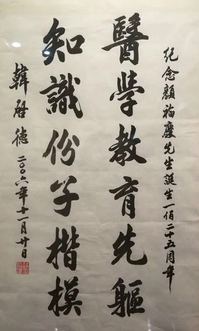 紀念顏福慶先生誕生一佰二十五周年
醫學教育先驅
知識份子楷模
韓啓德
二〇〇六年十一月廿日